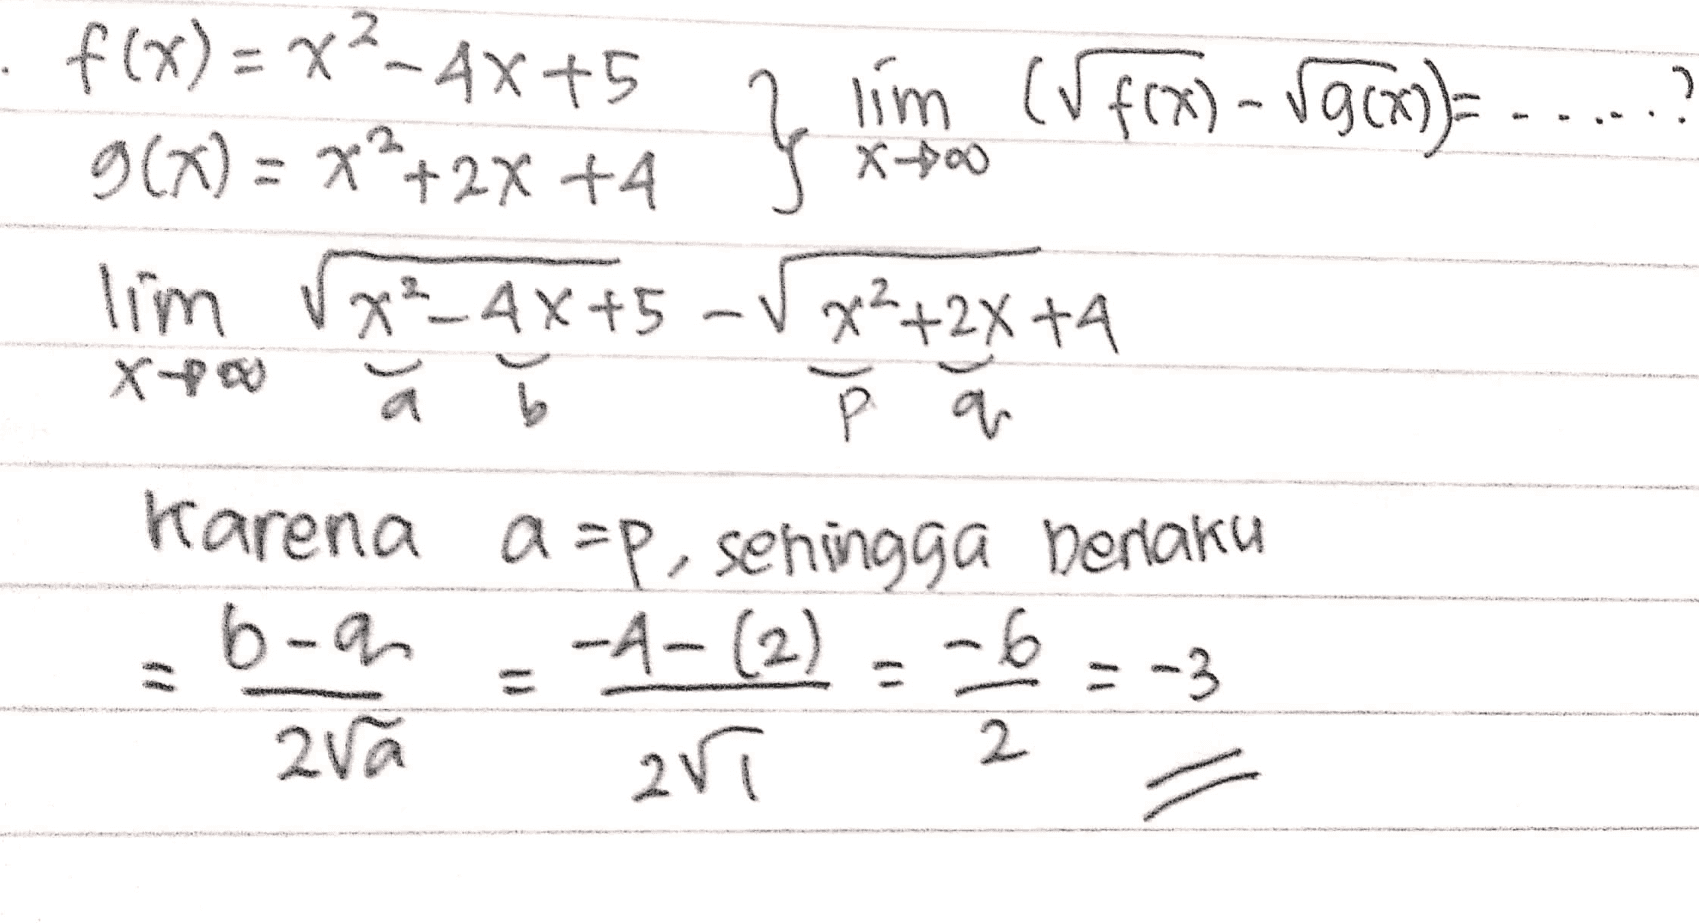 . f(x) = x² - 4x + 5
g(x) = x² + 2x + 4 } lim x→∞ (√f(x) - √g(x)) = ......?
lim x→∞ √x² - 4x + 5 - √x² + 2x + 4
a b p q
Karena a = p, sehingga berlaku
= b - q / 2√a = -4 - (2) / 2√1 = -6 / 2 = -3